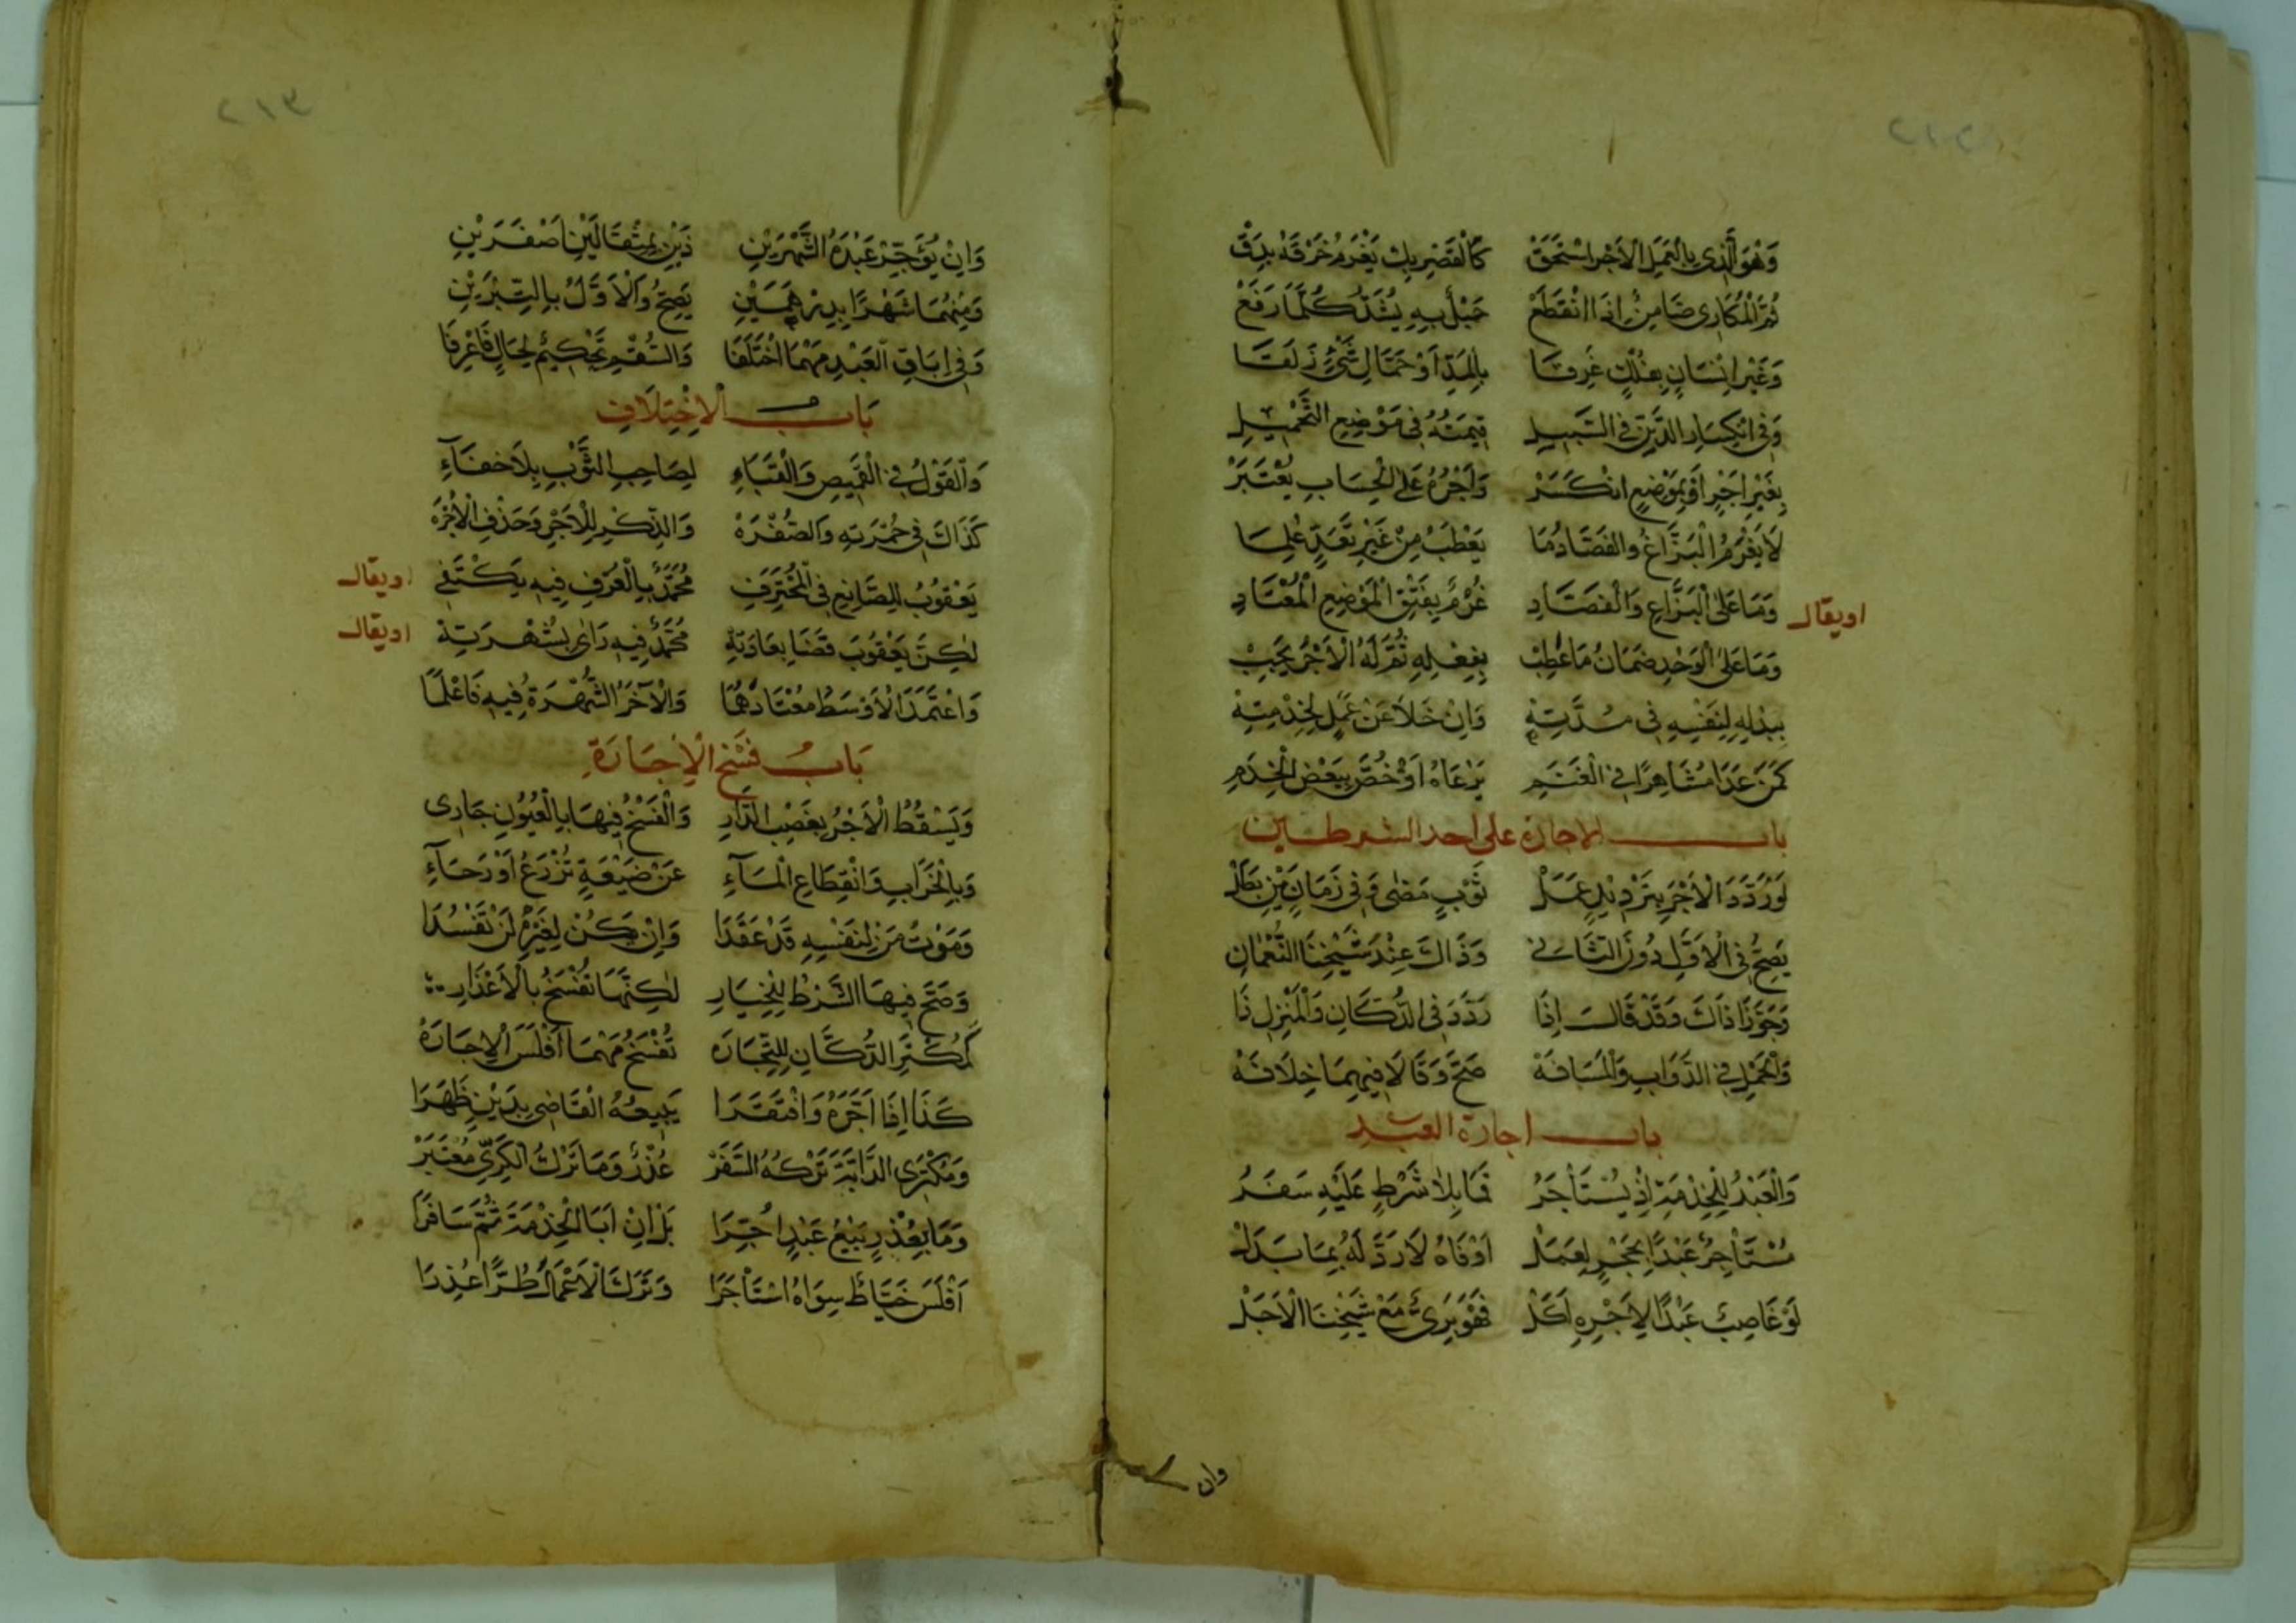 ٢١٢
وَهْوَ الَّذِي بِالْعَمَلِ الْأَجْرَ اسْتَحَقْ كَالْقَصْرِ بِكْ يَغْرَمُ خَرْقَهُ بِدَقْ
ثُمَّ الْمُكَارِي ضَامِنٌ إِذَا انْقَطَعْ حَبْلٌ بِهِ يَشُدُّ كُلَّمَا رَفَعْ
وَغَيْرَ إِنْسَانٍ بِفُلْكٍ غَرِقَا بِالْمَدِّ أَوْ حَمَّالِ شَيْءٍ زَلَقَا
وَفِي انْكِسَارِ الدَّنِّ فِي السَّبِيلِ قِيمَتُهُ فِي مَوْضِعِ التَّحْمِيلِ
بِغَيْرِ أَجْرٍ أَوْ بِمَوْضِعِ انْكَسَرْ وَأَجْرُهُ عَلَى الْحِسَابِ يُعْتَبَرْ
لَا يَغْرَمُ الْبَزَّاغُ وَالْفَصَّادُ مَا يَعْطَبُ مِنْ غَيْرِ تَعَدٍّ عُلِمَا
وَمَا عَلَى الْبَزَّاغِ وَالْفَصَّادِ غُرْمٌ بِفَتْقِ الْمَوْضِعِ الْمُعْتَادِ
او يقال
وَمَا عَلَى الْوَحْدِ ضَمَانُ مَا عَطِبْ بِفِعْلِهِ ثُمَّ لَهُ الْأَجْرُ يَجِبْ
بِبَذْلِهِ لِنَفْسِهِ فِي مُدَّتِهْ وَإِنْ خَلَا عَنْ عَمَلٍ لِخِدْمَتِهْ
كَمَنْ غَدَا مُشَاهِرًا فِي الْغَنَمِ يَرْعَاهُ أَوْ خُصَّ بِبَعْضِ الْخِدَمِ
باب الاجارة على احد الشرطين
لَوْ رَدَّدَ الْأَجْرَ بِتَرْدِيدِ عَمَلْ ثَوْبٍ مَضَى وَفِي زَمَانَيْنِ بَطَلْ
يَصِحُّ فِي الْأَوَّلِ دُونَ الثَّانِي وَذَاكَ عِنْدَ شَيْخِنَا النُّعْمَانِ
وَجَوَّزَا ذَاكَ وَقَدْ قَالَ إِذَا رَدَّدَ فِي الدُّكَّانِ وَالْمَنْزِلِ ذَا
وَالْحَمْلِ فِي الدَّوَابِ وَالْمَسَافَهْ صَحَّ وَقَالَا فِيهِمَا خِلَافَهْ
باب اجارة العبد
وَالْعَبْدُ لِلْخِدْمَةِ إِذْ يُسْتَأْجَرُ فَمَا بِلَا شَرْطٍ عَلَيْهِ سَفَرُ
مُسْتَأْجِرٌ عَبْدًا بِحَجْرٍ لِعَمَلْ أَوْفَاهُ لَا رَدَّ لَهُ بِمَا بَدَلْ
لَوْ غَاصِبٌ عَبْدًا لِأَجْرِهِ أَكَلْ فَهْوَ بَرِيءٌ مَعْ شَيْخِنَا الْأَجَلّْ
وان
٢١٣
وَإِنْ يُؤَجِّرْ عَبْدَهُ الشَّهْرَيْنِ ذَيْنِ بِمِثْقَالَيْنِ أَصْفَرَيْنِ
وَمِنْهُمَا شَهْرًا بِدِرْهَمَيْنِ يَصِحُّ وَالْأَوَّلُ بِالتِّبْرَيْنِ
وَفِي إِبَاقِ الْعَبْدِ مَهْمَا اخْتَلَفَا وَالسُّقْمِ تَحْكِيمٌ لِحَالٍ فَاعْرِفَا
بَابُ الْاِخْتِلَافِ
وَالْقَوْلُ فِي الْقَمِيصِ وَالْقَبَاءِ لِصَاحِبِ الثَّوْبِ بِلَا خَفَاءِ
كَذَاكَ فِي حُمْرَتِهِ وَالصُّفْرَهْ وَالذِّكْرِ لِلْأَجْرِ وَحَذْفِ الْأُجْرَهْ
يَعْقُوبُ لِلصَّانِعِ فِي الْمُحْتَرَفِ مُحَمَّدٌ بِالْعُرْفِ فِيهِ يَكْتَفِي
او يقال
لَكِنَّ يَعْقُوبَ قَضَا بِعَادَتِهْ مُحَمَّدٌ فِيهِ رَأَى بِشُهْرَتِهْ
او يقال
وَاعْتَمَدَ الْأَوْسَطُ مُعْتَادَهُمَا وَالْآخَرُ الشُّهْرَةَ فِيهِ فَاعْلَمَا
بَابُ فَسْخِ الْإِجَارَةِ
وَيَسْقُطُ الْأَجْرُ بِغَصْبِ الدَّارِ وَالْفَسْخُ فِيهَا بِالْعُيُوبِ جَارِي
وَبِالْخَرَابِ وَانْقِطَاعِ الْمَآءِ عَنْ ضَيْعَةٍ تُزْرَعُ أَوْ رَحَآءِ
وَمَوْتُ مَنْ لِنَفْسِهِ قَدْ عَقَدَا وَإِنْ يَكُنْ لِغَيْرِهِ لَنْ تَفْسُدَا
وَصَحَّ فِيهَا الشَّرْطُ لِلْخِيَارِ لَكِنَّهَا تُفْسَخُ بِالْأَعْذَارِ
كَمُكْتَرِ الدُّكَّانِ لِلتِّجَارَهْ تُفْسَخُ مَهْمَا أَفْلَسَ الْإِجَارَهْ
كَذَا إِذَا آجَرَهُ وَافْتَقَرَا يَبِيعُهُ الْقَاضِي بِدَيْنٍ ظَهَرَا
وَمُكْتَرِي الدَّابَّةِ تَرْكُهُ السَّفَرْ عُذْرٌ وَمَا تَرْكُ الْكَرِيِّ مُعْتَبَرْ
وَمَا بِعُذْرٍ بَيْعُ عَبْدٍ أُجِّرَا بَلْ إِنْ أَبَا الْخِدْمَةَ ثُمَّ سَافَرَا
أَفْلَسَ خَيَّاطٌ سِوَاهُ اسْتَأْجَرَا وَتَرَكَ الْأَعْمَالَ طُرًّا عُذِرَا